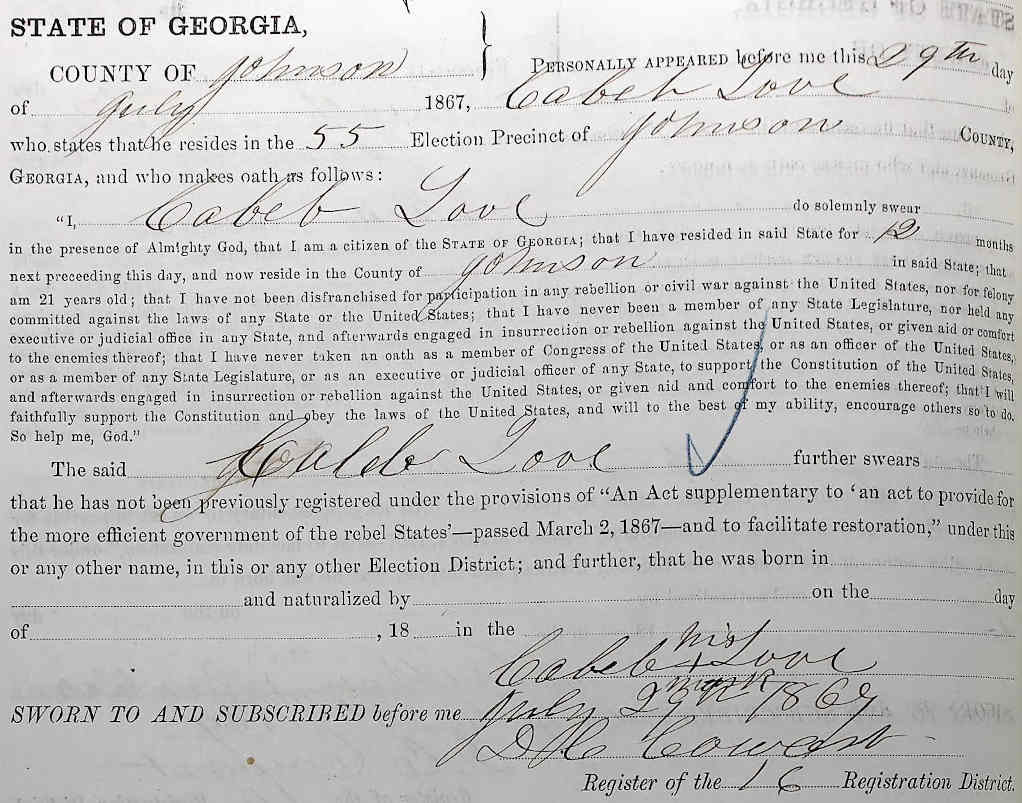 STATE OF GEORGIA,
COUNTY OF Johnson } PERSONALLY APPEARED before me this 29th day
of July 1867, Cabeb Love
who states that he resides in the 55 Election Precinct of Johnson COUNTY,
GEORGIA, and who makes oath as follows:
"I, Cabeb Love do solemnly swear
in the presence of Almighty God, that I am a citizen of the STATE OF GEORGIA; that I have resided in said State for 12 months
next preceeding this day, and now reside in the County of Johnson in said State; that
am 21 years old; that I have not been disfranchised for participation in any rebellion or civil war against the United States, nor for felony
committed against the laws of any State or the United States; that I have never been a member of any State Legislature, nor held any
executive or judicial office in any State, and afterwards engaged in insurrection or rebellion against the United States, or given aid or comfort
to the enemies thereof; that I have never taken an oath as a member of Congress of the United States, or as an officer of the United States,
or as a member of any State Legislature, or as an executive or judicial officer of any State, to support the Constitution of the United States,
and afterwards engaged in insurrection or rebellion against the United States, or given aid and comfort to the enemies thereof; that I will
faithfully support the Constitution and obey the laws of the United States, and will to the best of my ability, encourage others so to do.
So help me, God."
The said Caleb Love further swears
that he has not been previously registered under the provisions of "An Act supplementary to 'an act to provide for
the more efficient government of the rebel States'—passed March 2, 1867—and to facilitate restoration," under this
or any other name, in this or any other Election District; and further, that he was born in
and naturalized by on the day
of , 18 in the
his
Cabeb + Love
mark
SWORN TO AND SUBSCRIRED before me July 29th 1867
D H Cowart
Register of the 16 Registration District.